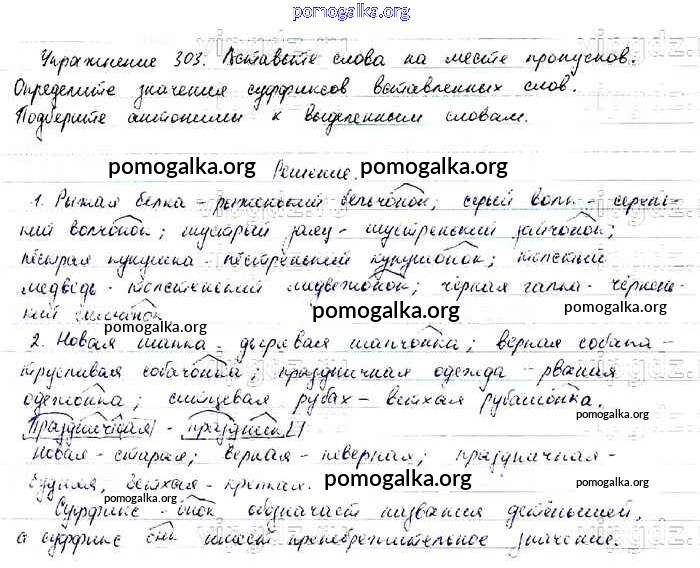 pomogalka.org
Упражнение 303. Вставьте слова на месте пропусков.
Определите значения суффиксов вставленных слов.
Подберите антонимы к выделенным словам.
pomogalka.org pomogalka.org
Решение.
1. Рыжая белка - рыженький бельчонок; серый волк - серень-
кий волчонок; шустрый заяц - шустренький зайчонок;
пёстрая кукушка - пёстренький кукушонок; толстый
медведь - толстенький медвежонок; чёрная галка - чёрнень-
кий галчонок.
pomogalka.org pomogalka.org pomogalka.org
2. Новая шапка - дырявая шапчонка; верная собака -
трусливая собачонка; праздничная одежда - рваная
одежонка; ситцевая рубах - ветхая рубашонка.
pomogalka.org
Праздничная - праздник
Новая - старая; верная - неверная; праздничная -
будняя, ветхая - крепкая.
pomogalka.org pomogalka.org
Суффикс - онок обозначает названия детёнышей,
а суффикс онк имеет пренебрежительное значение.